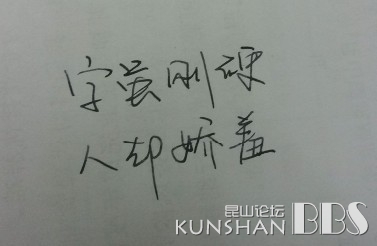 字蛮刚硬
人却娇羞
昆山论坛
KUNSHAN BBS